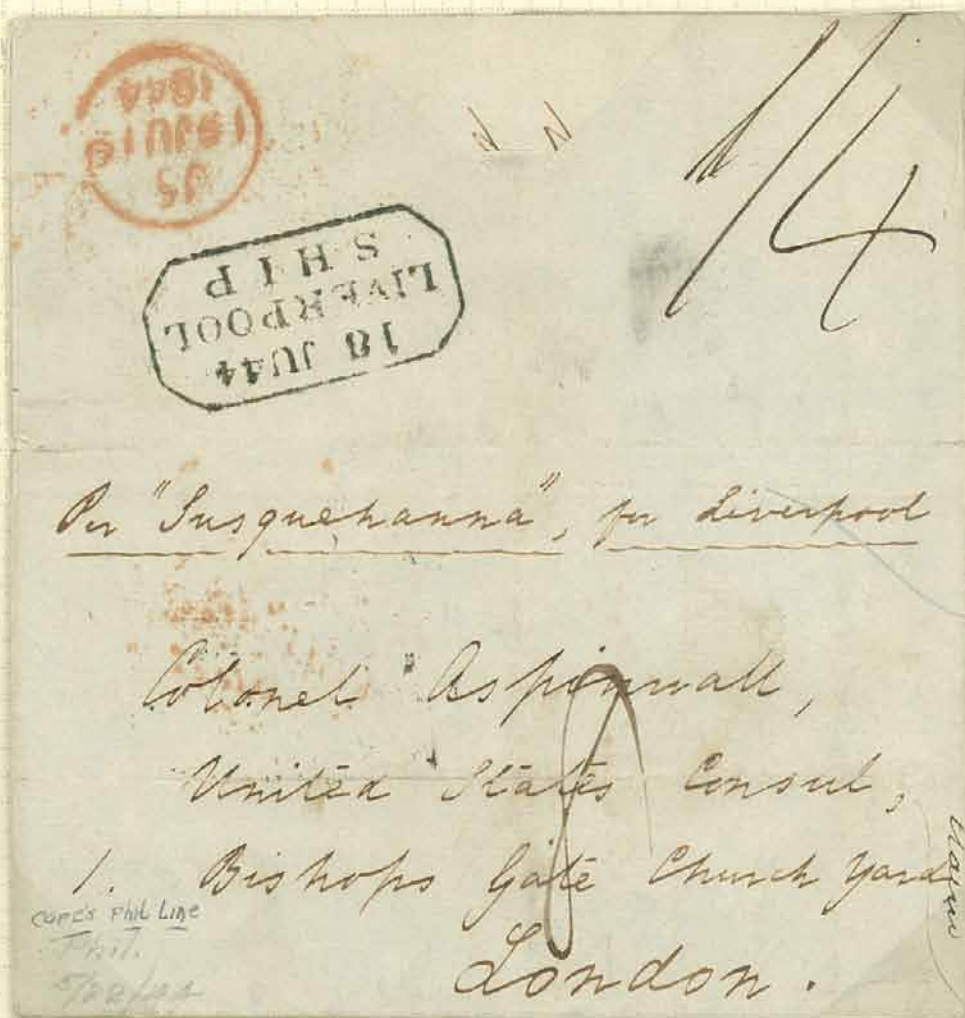 JS
19 JU 19
1844
1/4
18 JU44
LIVERPOOL
SHIP
Per "Susquehanna", for Liverpool
Colonel Aspinwall,
United States Consul,
1. Bishops Gate Church Yard
London.
COPE'S Phil Line
Phil.
5/22/44